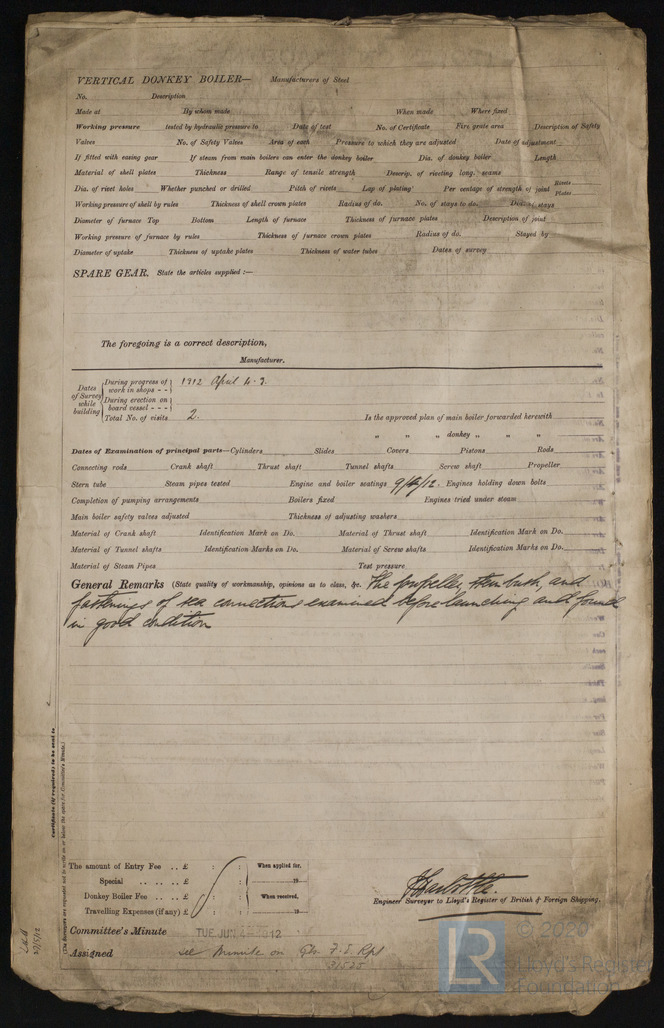 VERTICAL DONKEY BOILER— Manufacturers of Steel
No. Description
Made at By whom made When made Where fixed
Working pressure tested by hydraulic pressure to Date of test No. of Certificate Fire grate area Description of Safety
Valves No. of Safety Valves Area of each Pressure to which they are adjusted Date of adjustment
If fitted with easing gear If steam from main boilers can enter the donkey boiler Dia. of donkey boiler Length
Material of shell plates Thickness Range of tensile strength Descrip. of riveting long. seams
Dia. of rivet holes Whether punched or drilled Pitch of rivets Lap of plating Per centage of strength of joint Rivets Plates
Working pressure of shell by rules Thickness of shell crown plates Radius of do. No. of stays to do. Dia. of stays
Diameter of furnace Top Bottom Length of furnace Thickness of furnace plates Description of joint
Working pressure of furnace by rules Thickness of furnace crown plates Radius of do. Stayed by
Diameter of uptake Thickness of uptake plates Thickness of water tubes Dates of survey
SPARE GEAR. State the articles supplied :—
The foregoing is a correct description,
Manufacturer.
Dates of Survey while building
During progress of work in shops - - 1912 April 4. 9.
During erection on board vessel - - -
Total No. of visits 2. Is the approved plan of main boiler forwarded herewith
" " " donkey " "
Dates of Examination of principal parts—Cylinders Slides Covers Pistons Rods
Connecting rods Crank shaft Thrust shaft Tunnel shafts Screw shaft Propeller
Stern tube Steam pipes tested Engine and boiler seatings 9/4/12. Engines holding down bolts
Completion of pumping arrangements Boilers fixed Engines tried under steam
Main boiler safety valves adjusted Thickness of adjusting washers
Material of Crank shaft Identification Mark on Do. Material of Thrust shaft Identification Mark on Do.
Material of Tunnel shafts Identification Marks on Do. Material of Screw shafts Identification Marks on Do.
Material of Steam Pipes Test pressure
General Remarks (State quality of workmanship, opinions as to class, &c. The propeller, stern bush, and
fastenings of sea connections examined before launching and found
in good condition
Certificate (if required) to be sent to
(The Surveyors are requested not to write on or below the space for Committee's Minute.)
The amount of Entry Fee . . £ : : When applied for,
Special . . . . £ : : 19
Donkey Boiler Fee . . £ : : When received,
Travelling Expenses (if any) £ : : 19
Engineer Surveyor to Lloyd's Register of British & Foreign Shipping.
Committee's Minute TUE. JUN. 4 1912
Assigned see Minute on Gls. F.E. Rpt
31525
LR
© 2020
Lloyd's Register
Foundation